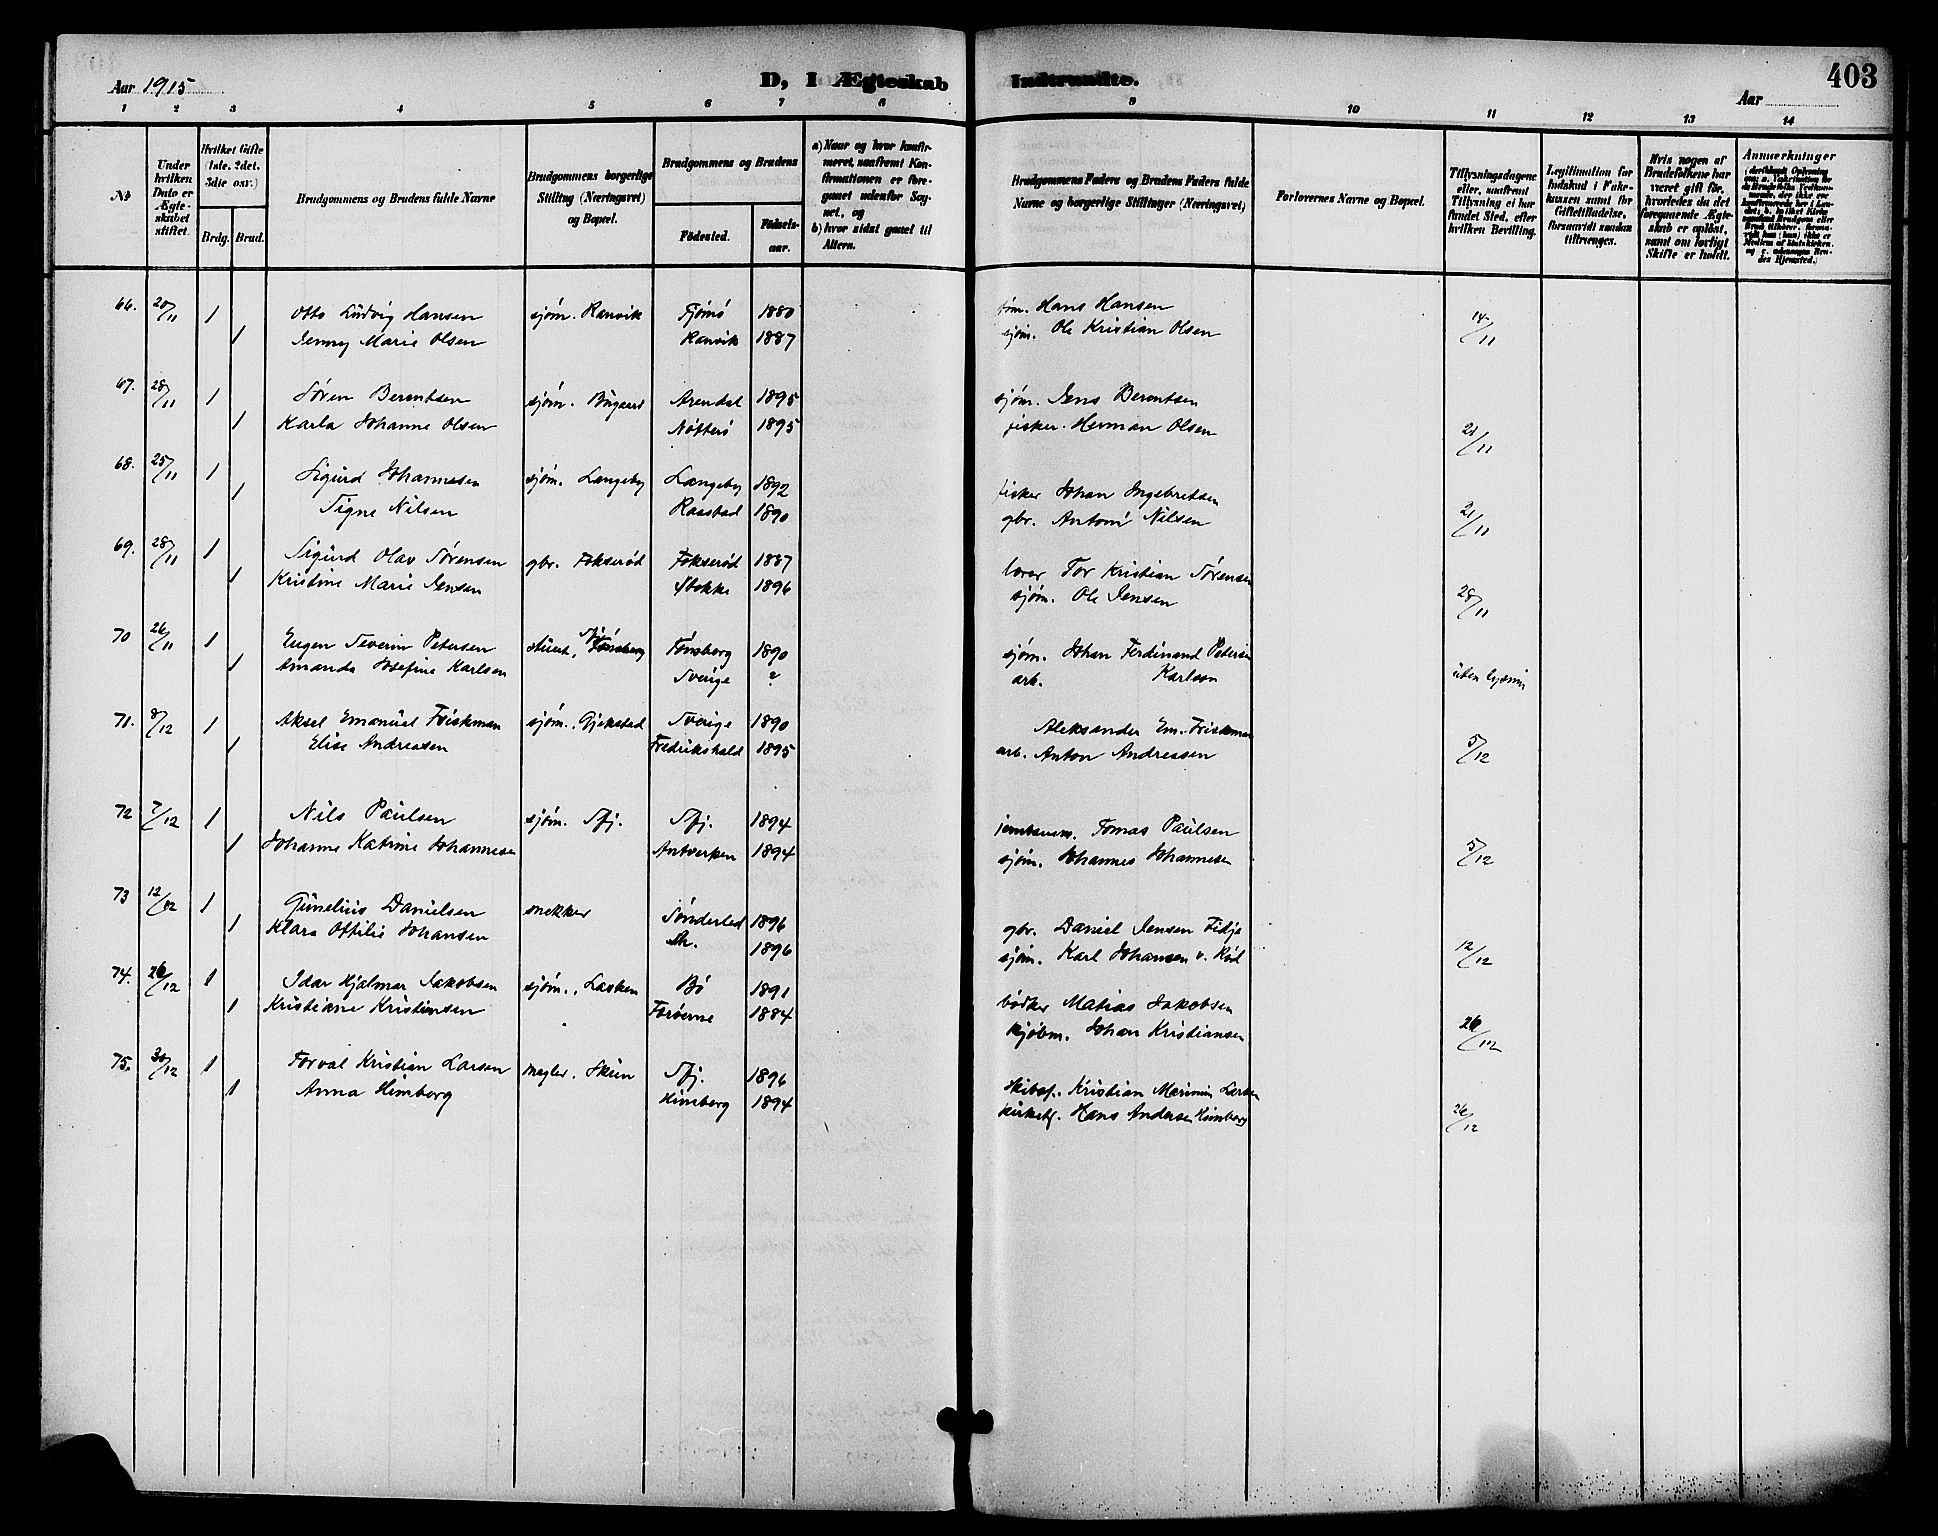 Aar 1915 D, I Ægteskab Indtraadte. Aar 403
1 2 3 4 5 6 7 8 9 10 11 12 13 14
№
Under hvilken Dato er Ægteskabet stiftet.
Hvilket Gifte (1ste, 2det, 3die osv.)
Brdg. Brud.
Brudgommens og Brudens fulde Navne
Brudgommens borgerlige Stilling (Næringsvei) og Bopæl.
Brudgommens og Brudens
Fødested. Fødselsaar.
a) Naar og hvor konfirmeret, naafremt Konfirmationen er foregaaet udenfor Sognet, og
b) hvor sidst gaaet til Alters.
Brudgommens Faders og Brudens Faders fulde Navne og borgerlige Stillinger (Næringsvei)
Forlovernes Navne og Bopæl.
Tillysningsdagene eller, naafremt Tillysning ei har fundet Sted, efter hvilken Bevilling.
Legitimation for Indskud i Enkekassen samt for Giftetilladelse, forsaavidt saadan tiltrænges.
Hvis nogen af Brudefolkene har været gift før, hvorledes da det foregaaende Ægteskab er opløst, samt om lovligt Skifte er holdt.
Anmærkninger
66. 20/11 1 Otto Ludvig Hansen sjøm. Ranvik Tjømø 1880 sjøm. Hans Hansen 14/11
1 Jenny Marie Olsen Ranvik 1887 sjøm. Ole Kristian Olsen
67. 28/11 1 Søren Berentsen sjøm. Bugaard Arendal 1895 sjøm. Jens Berentsen 21/11
1 Karla Johanne Olsen Nøtterø 1895 fisker. Herman Olsen
68. 25/11 1 Sigurd Johannesen sjøm. Langeby Langeby 1892 fisker Johan Ingebretsen 21/11
1 Signe Nilsen Raastad 1890 gbr. Anton Nilsen
69. 28/11 1 Sigurd Olav Sørensen gbr. Fokserød Fokserød 1887 lærer Tor Kristian Sørensen 28/11
1 Kristine Marie Jensen Stokke 1896 sjøm. Ole Jensen
70 26/11 1 Eugen Severin Petersen stuert, Sfj. Tønsberg Tønsberg 1890 sjøm. Johan Ferdinand Petersen
1 Amanda Josefine Karlsen Sverige ? arb. Karlson uten lysning
71. 8/12 1 Aksel Emanuel Friskman sjøm. Gjekstad Sverige 1890 Aleksander Em. Friskman 5/12
1 Elise Andreasen Fredrikshald 1895 arb. Anton Andreasen
72 7/12 1 Nils Paulsen sjøm. Sfj. Sfj. 1894 Tomas Paulsen 5/12
1 Johanne Katrine Johannesen Antverpen 1894 sjøm. Johannes Johannesen
73 12/12 1 Gunelius Danielsen snekker Søndeled 1896 gbr. Daniel Jensen Fidje 12/12
1 Klara Otilie Johansen Sh. 1896 sjøm. Karl Johansen v. Rød
74. 26/12 1 Idar Hjalmar Jakobsen sjøm., Lasken Bø 1891 bødker Matias Jakobsen 26/12
1 Kristiane Kristiansen Færøerne 1884 kjøbm. Johan Kristiansen
75. 30/12 1 Torval Kristian Larsen megler. Skien Sfj. 1896 skibsf. Kristian Larsen 26/12
1 Anna Himberg Himberg 1894 kirketj. Hans Andersen Himberg